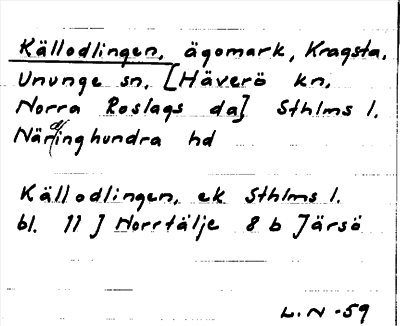 Källodlingen, ägomark, Kragsta.
Ununge sn. [Häverö kn.
Norra Roslags da] Sthlms l.
Närdinghundra hd
Källodlingen, ek Sthlms l.
bl. 11 J Norrtälje 8 b Järsö
L.N -59